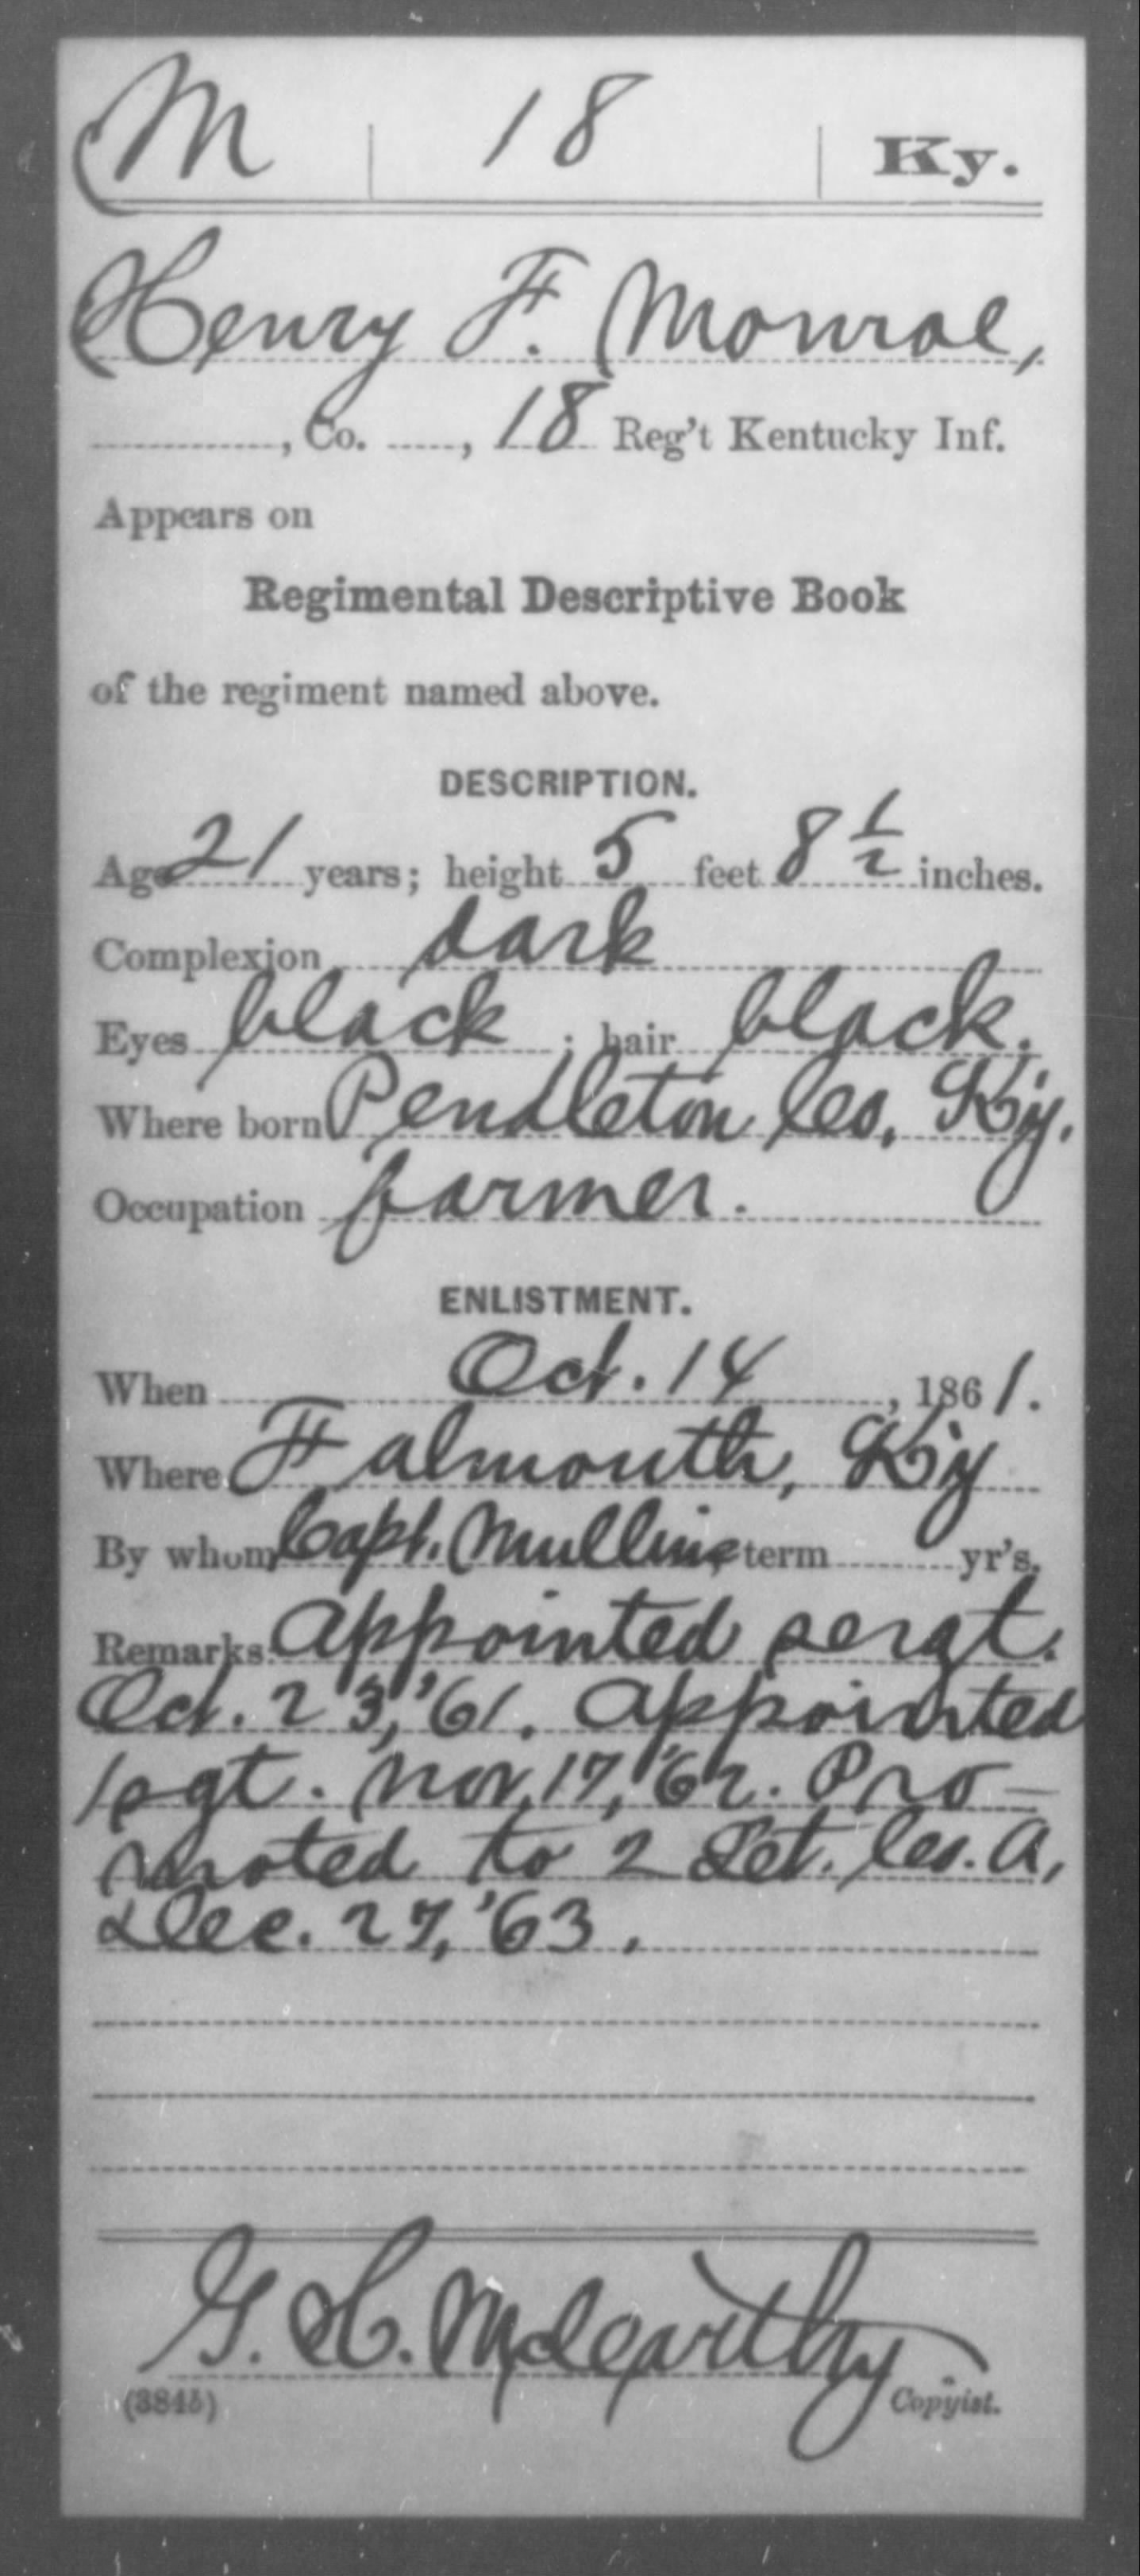 M | 18 | Ky.
Henry F. Monroe,
, Co. , 18 Reg't Kentucky Inf.
Appears on
Regimental Descriptive Book
of the regiment named above.
DESCRIPTION.
Age 21 years; height 5 feet 8 1/2 inches.
Complexion dark
Eyes black ; hair black.
Where born Pendleton Co, Ky.
Occupation farmer.
ENLISTMENT.
When Oct. 14, 1861.
Where Falmouth, Ky
By whom Capt. Mullins term yr's.
Remarks: appointed sergt.
Oct. 23, '61. appointed
1 sgt. Nov. 17, '62. Pro-
moted to 2 Lt. Co. A,
Dec. 27, '63.
G. H. McCarthy
(3845) Copyist.